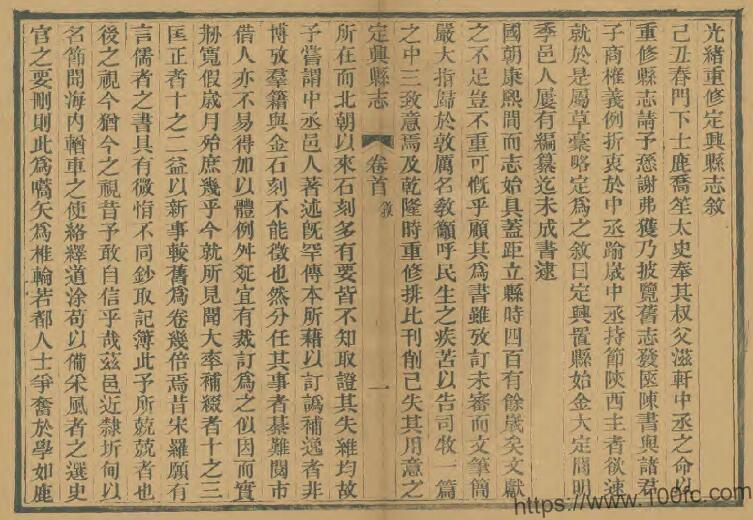 光緒重修定興縣志敘
己丑春門下士鹿喬笙太史奉其叔父滋軒中丞之命以
重修縣志請予懣謝弗獲乃披覽舊志發匧陳書與諸君
子商榷義例折衷於中丞踰歲中丞持節陝西主者欲速
就於是屬草稾略定爲之敘曰定興置縣始金大定間明
季邑人屢有編纂迄未成書逮
國朝康熙間而志始具蓋距立縣時四百有餘歲矣文獻
之不足豈不重可慨乎顧其爲書雖攷訂未審而文筆簡
嚴大指歸於敦厲名敎籲呼民生之疾苦以告司牧一篇
之中三致意焉及乾隆時重修排比刊削已失其用意之
定興縣志
卷首
敘
一
所在而北朝以來石刻多有要皆不知取證其失維均故
予嘗謂中丞邑人著述旣罕傳本所藉以訂譌補逸者非
博攷羣籍與金石刻不能徵也然分任其事者綦難閱市
借人亦不易得加以體例舛延宜有裁訂爲之似因而實
剙寬假歲月殆庶幾乎今就所見聞大率補綴者十之三
匡正者十之二益以新事較舊爲卷幾倍焉昔宋羅願有
言儒者之書具有微恉不同鈔取記簿此予所兢兢者也
後之視今猶今之視昔予敢自信乎哉茲邑近隸圻甸以
名節聞海内輶車之使絡繹道涂苟以備采風者之選史
官之要刪則此爲嚆矢爲椎輪若都人士爭奮於學如鹿
https://www.100fc.com